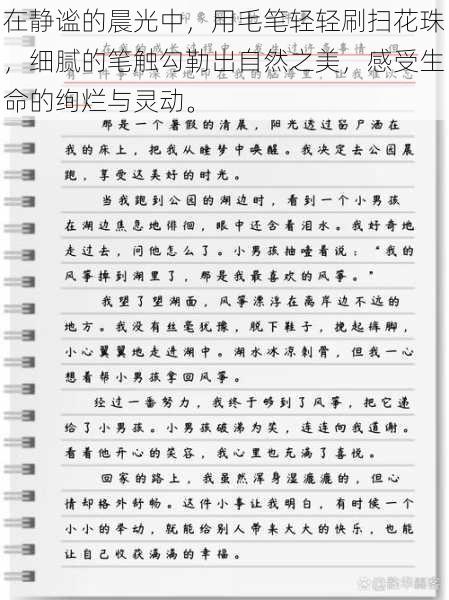 在静谧的晨光中，用毛笔轻轻刷扫花珠
，细腻的笔触勾勒出自然之美，感受生
命的绚烂与灵动。
那是一个暑假的清晨，阳光透过窗户洒在
我的床上，把我从睡梦中唤醒。我决定去公园晨
跑，享受这美好的时光。
当我跑到公园的湖边时，看到一个小男孩
在湖边焦急地徘徊，眼中还含着泪水。我好奇地
走过去，问他怎么了。小男孩抽噎着说：“我的
风筝掉到湖里了，那是我最喜欢的风筝。”
我望了望湖面，风筝漂浮在离岸边不远的
地方。我没有丝毫犹豫，脱下鞋子，挽起裤脚，
小心翼翼地走进湖中。湖水冰凉刺骨，但我一心
想着帮小男孩拿回风筝。
经过一番努力，我终于够到了风筝，把它递
给了小男孩。小男孩破涕为笑，连连向我道谢。
看着他开心的笑容，我心里也充满了喜悦。
回家的路上，我虽然浑身湿漉漉的，但心
情却格外舒畅。这件小事让我明白，有时候一个
小小的举动，就能给别人带来大大的快乐，也能
让自己收获满满的幸福。